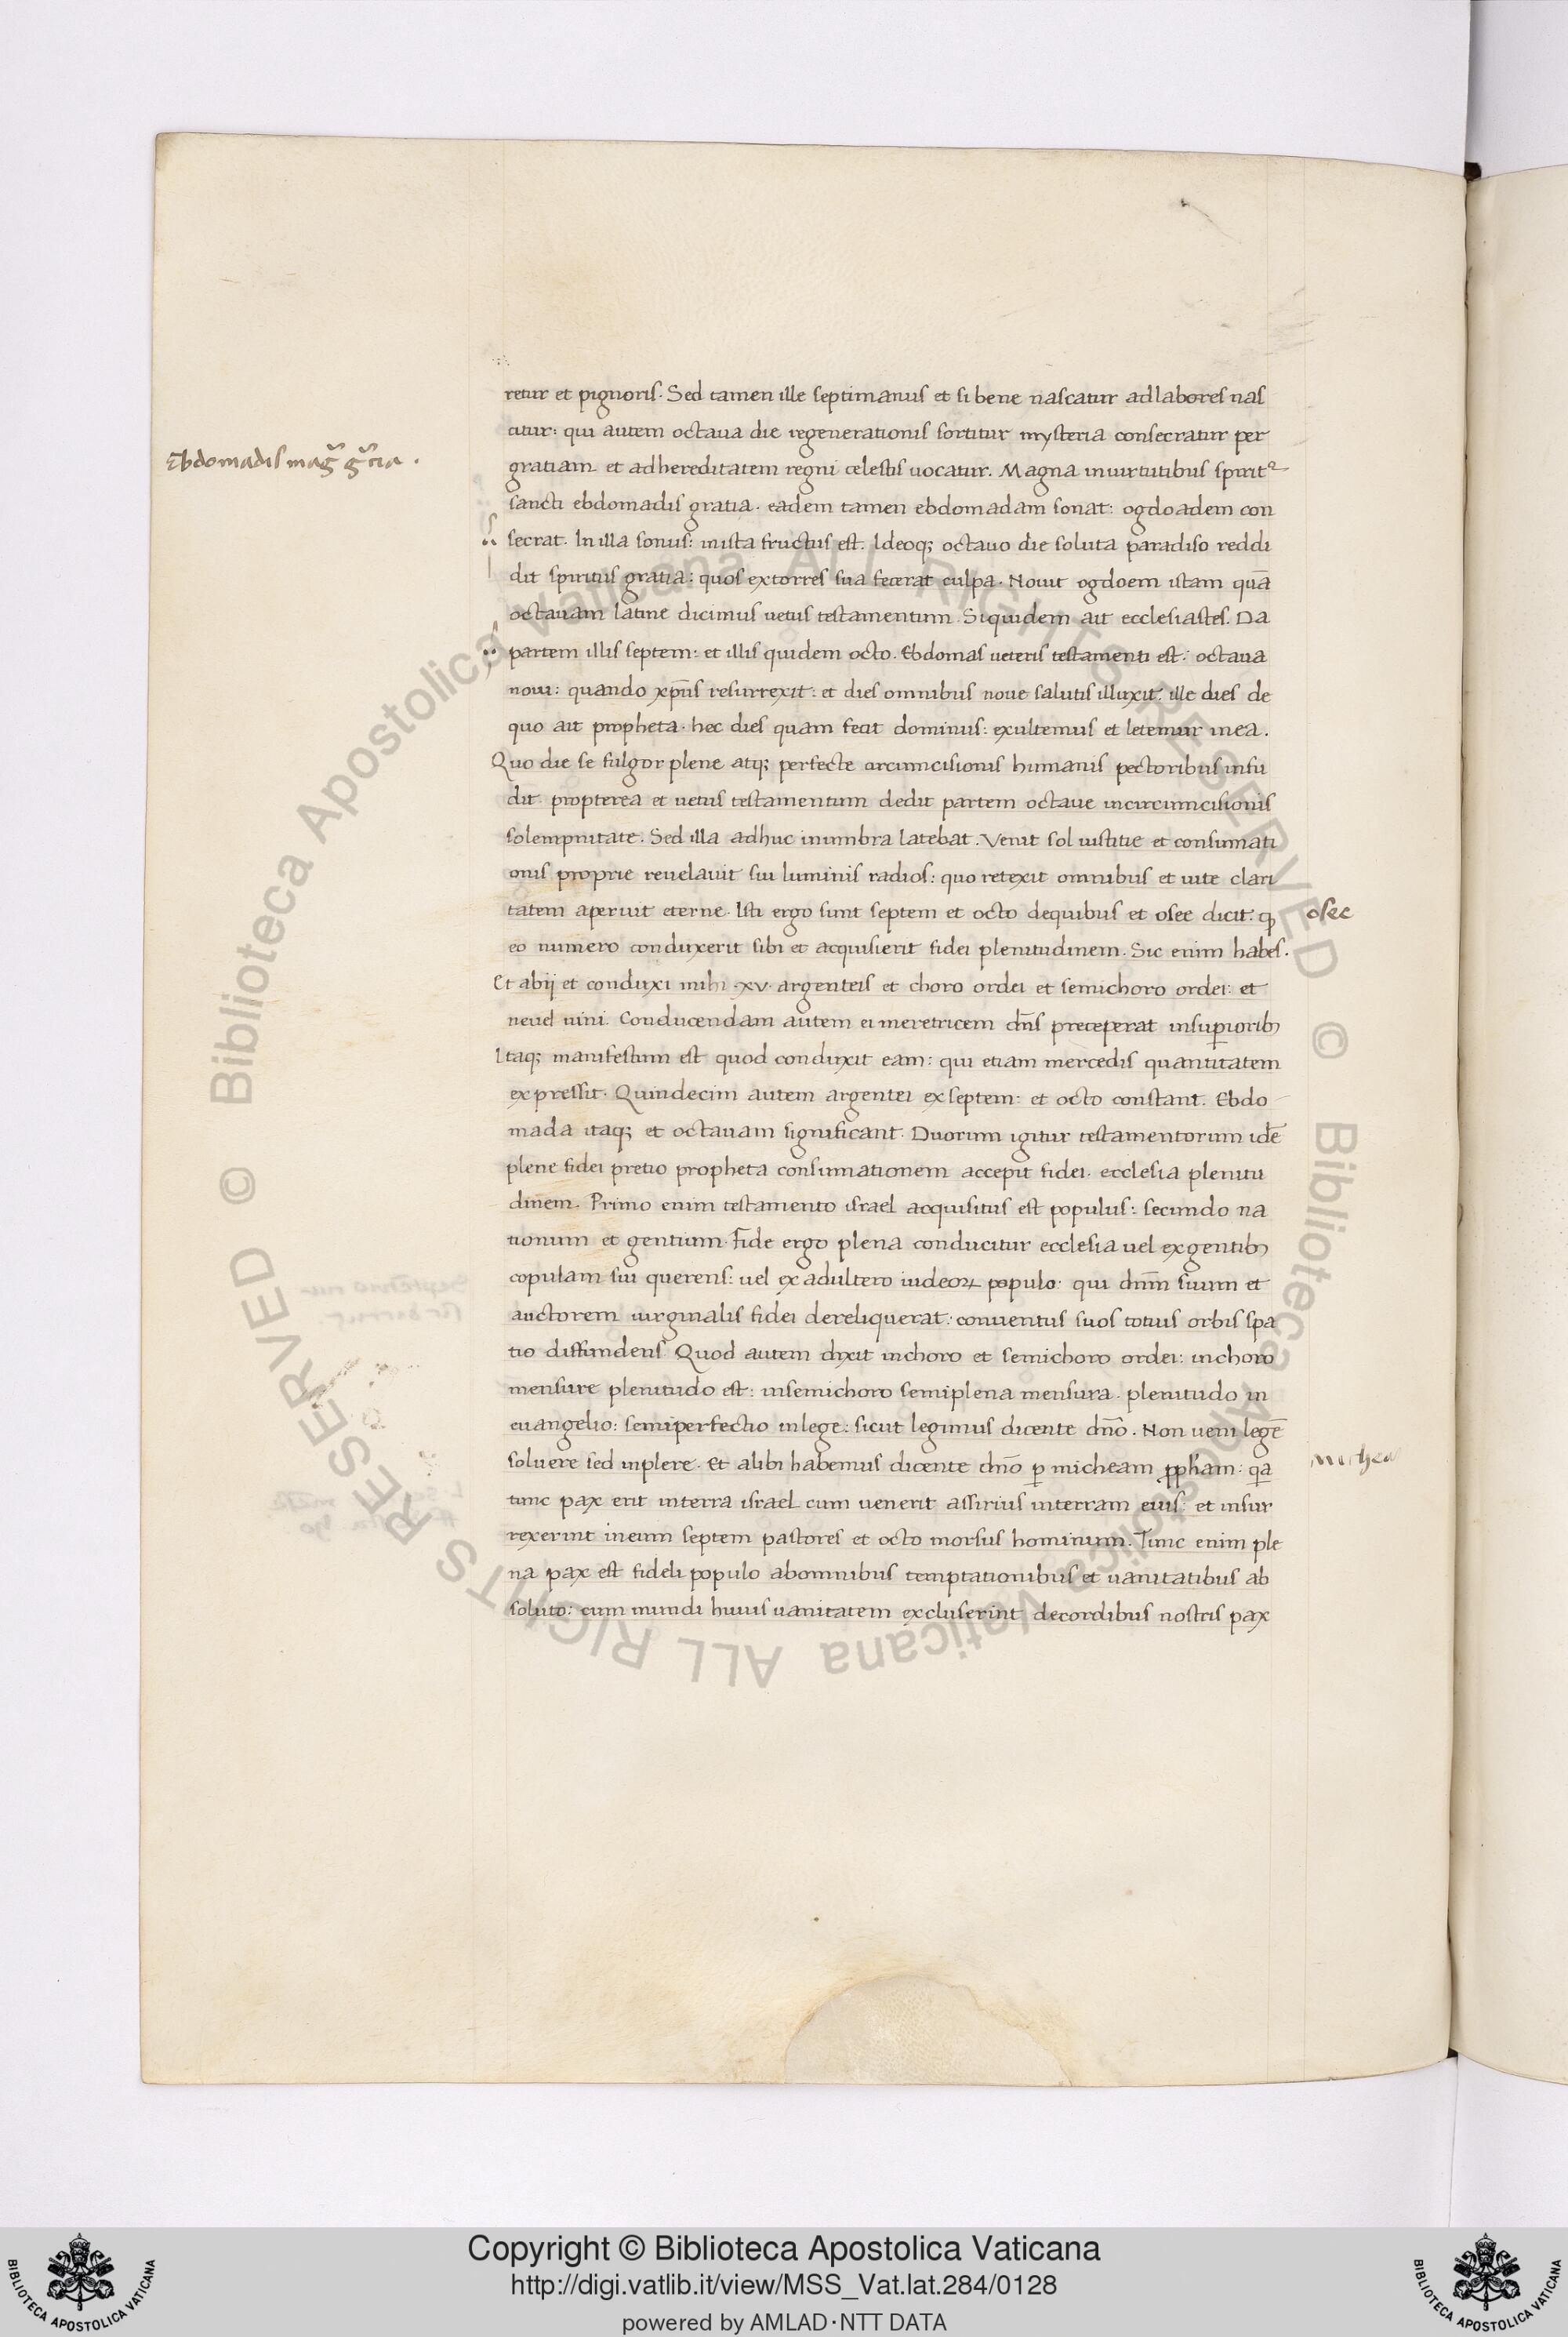 retur et pignoris. Sed tamen ille septimanus et si bene nascatur ad labores nas
citur: qui autem octaua die regenerationis sortitur mysteria consecratur per
Ebdomadis mag̃ g̃cia.
gratiam et ad hereditatem regni celestis uocatur. Magna in uirtutibus spirit᾿
sancti ebdomadis gratia. eadem tamen ebdomadam sonat: ogdoadem con
secrat. In illa sonus: in ista fructus est. Ideoq; octauo die soluta paradiso reddi
dit spiritus gratia: quos extorres sua fecerat culpa. Nouit ogdoem istam quā
octauam latine dicimus uetus testamentum. Siquidem ait ecclesiastes. Da
partem illis septem: et illis quidem octo. Ebdomas ueteris testamenti est: octaua
noui: quando xp̄us resurrexit: et dies omnibus noue salutis illuxit: ille dies de
quo ait propheta. hec dies quam fecit dominus: exultemus et letemur in ea.
Quo die se fulgor plene atq; perfecte circumcisionis humanis pectoribus infu
dit. propterea et uetus testamentum dedit partem octaue in circumcisionis
solempnitate. Sed illa adhuc in umbra latebat. Venit sol iustitie et consumati
onis proprie reuelauit sui luminis radios: quo retexit omnibus et uite clari
tatem aperuit eterne. Isti ergo sunt septem et octo de quibus et osee dicit. ꝙ
osee
eo numero conduxerit sibi et acquisierit fidei plenitudinem. Sic enim habes.
Et abij et conduxi mihi .xv. argenteis et choro ordei et semichoro ordei: et
neuel uini. Conducendam autem ei meretricem dn̄s preceperat in suꝑiorib;
Itaq; manifestum est quod conduxit eam: qui etiam mercedis quantitatem
expressit. Quindecim autem argentei ex septem: et octo constant. Ebdo
mada itaq; et octauam significant. Duorum igitur testamentorum idē
plene fidei pretio propheta consumationem accepit fidei. ecclesia plenitu
dinem. Primo enim testamento israel acquisitus est populus: secundo na
tionum et gentium. Fide ergo plena conducitur ecclesia uel ex gentib;
copulam sui querens: uel ex adultero iudeoꝝ populo: qui dn̄m suum et
auctorem uirginalis fidei dereliquerat: conuentus suos totius orbis spa
tio diffundens. Quod autem dixit in choro et semichoro ordei: in choro
mensure plenitudo est: in semichoro semiplena mensura. plenitudo in
euangelio: semiperfectio in lege: sicut legimus dicente dn̄o. Non ueni legē
soluere sed inplere. Et alibi habemus dicente dn̄o ꝑ micheam ꝓpham: qa
tunc pax erit in terra israel cum uenerit assirius in terram eius: et insur
rexerint in eum septem pastores et octo morsus hominum. Tunc enim ple
na pax est fideli populo ab omnibus temptationibus et uanitatibus ab
soluto: cum mundi huius uanitatem excluserint de cordibus nostris pax
Copyright © Biblioteca Apostolica Vaticana
http://digi.vatlib.it/view/MSS_Vat.lat.284/0128
powered by AMLAD·NTT DATA
BIBLIOTECA APOSTOLICA VATICANA
BIBLIOTECA APOSTOLICA VATICANA
© Biblioteca Apostolica Vaticana ALL RIGHTS RESERVED
© Biblioteca Apostolica Vaticana ALL RIGHTS RESERVED